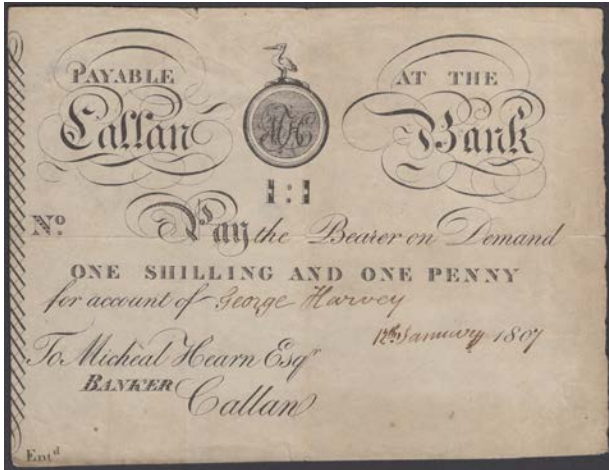 PAYABLE AT THE
Callan Bank
MH
1:1
No.
Pay the Bearer on Demand
ONE SHILLING AND ONE PENNY
for account of George Harvey
12th January 1807
To Micheal Hearn Esqr
BANKER
Callan
Entd